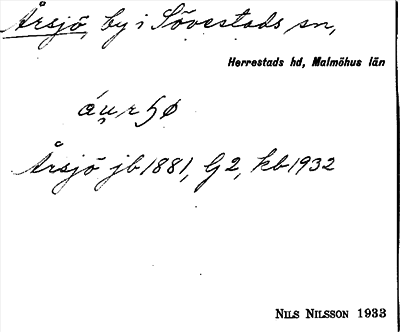 Årsjö, by i Sövestads sn,
Herrestads hd, Malmöhus län
Årsjö jb 1881, G 2, kb 1932
NILS NILSSON 1933